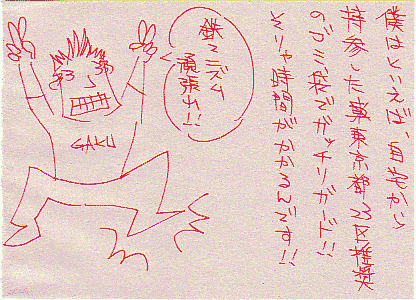 僕はといえば自宅から
持参した東京都23区推奨
のゴミ袋でガッチリガード!!
そりゃ時間がかかるんです!!
鉄マニズム
頑張れ!!
GAKU